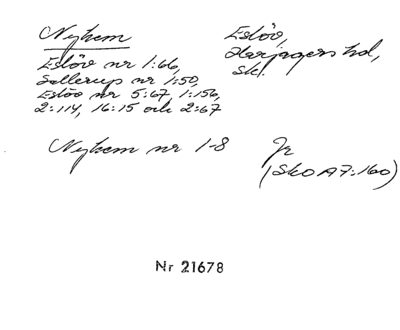 Nyhem
Eslöv,
Harjagers hd,
Sk.
Eslöv nr 1:66,
Sallerup nr 1:50,
Eslöv nr 5:67, 1:156,
2:114, 16:15 och 2:67
Nyhem nr 1-8
Jr
(SkO A7:160)
Nr 21678